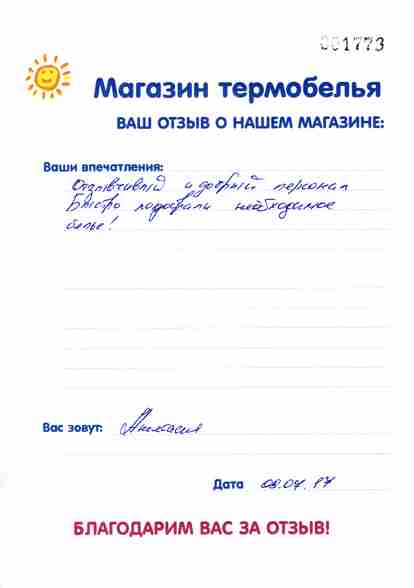 001773
Магазин термобелья
ВАШ ОТЗЫВ О НАШЕМ МАГАЗИНЕ:
Ваши впечатления:
Отзывчивый и добрый персонал
Быстро подобрали необходимое
белье!
Вас зовут: Анастасия
Дата 08.07.17
БЛАГОДАРИМ ВАС ЗА ОТЗЫВ!